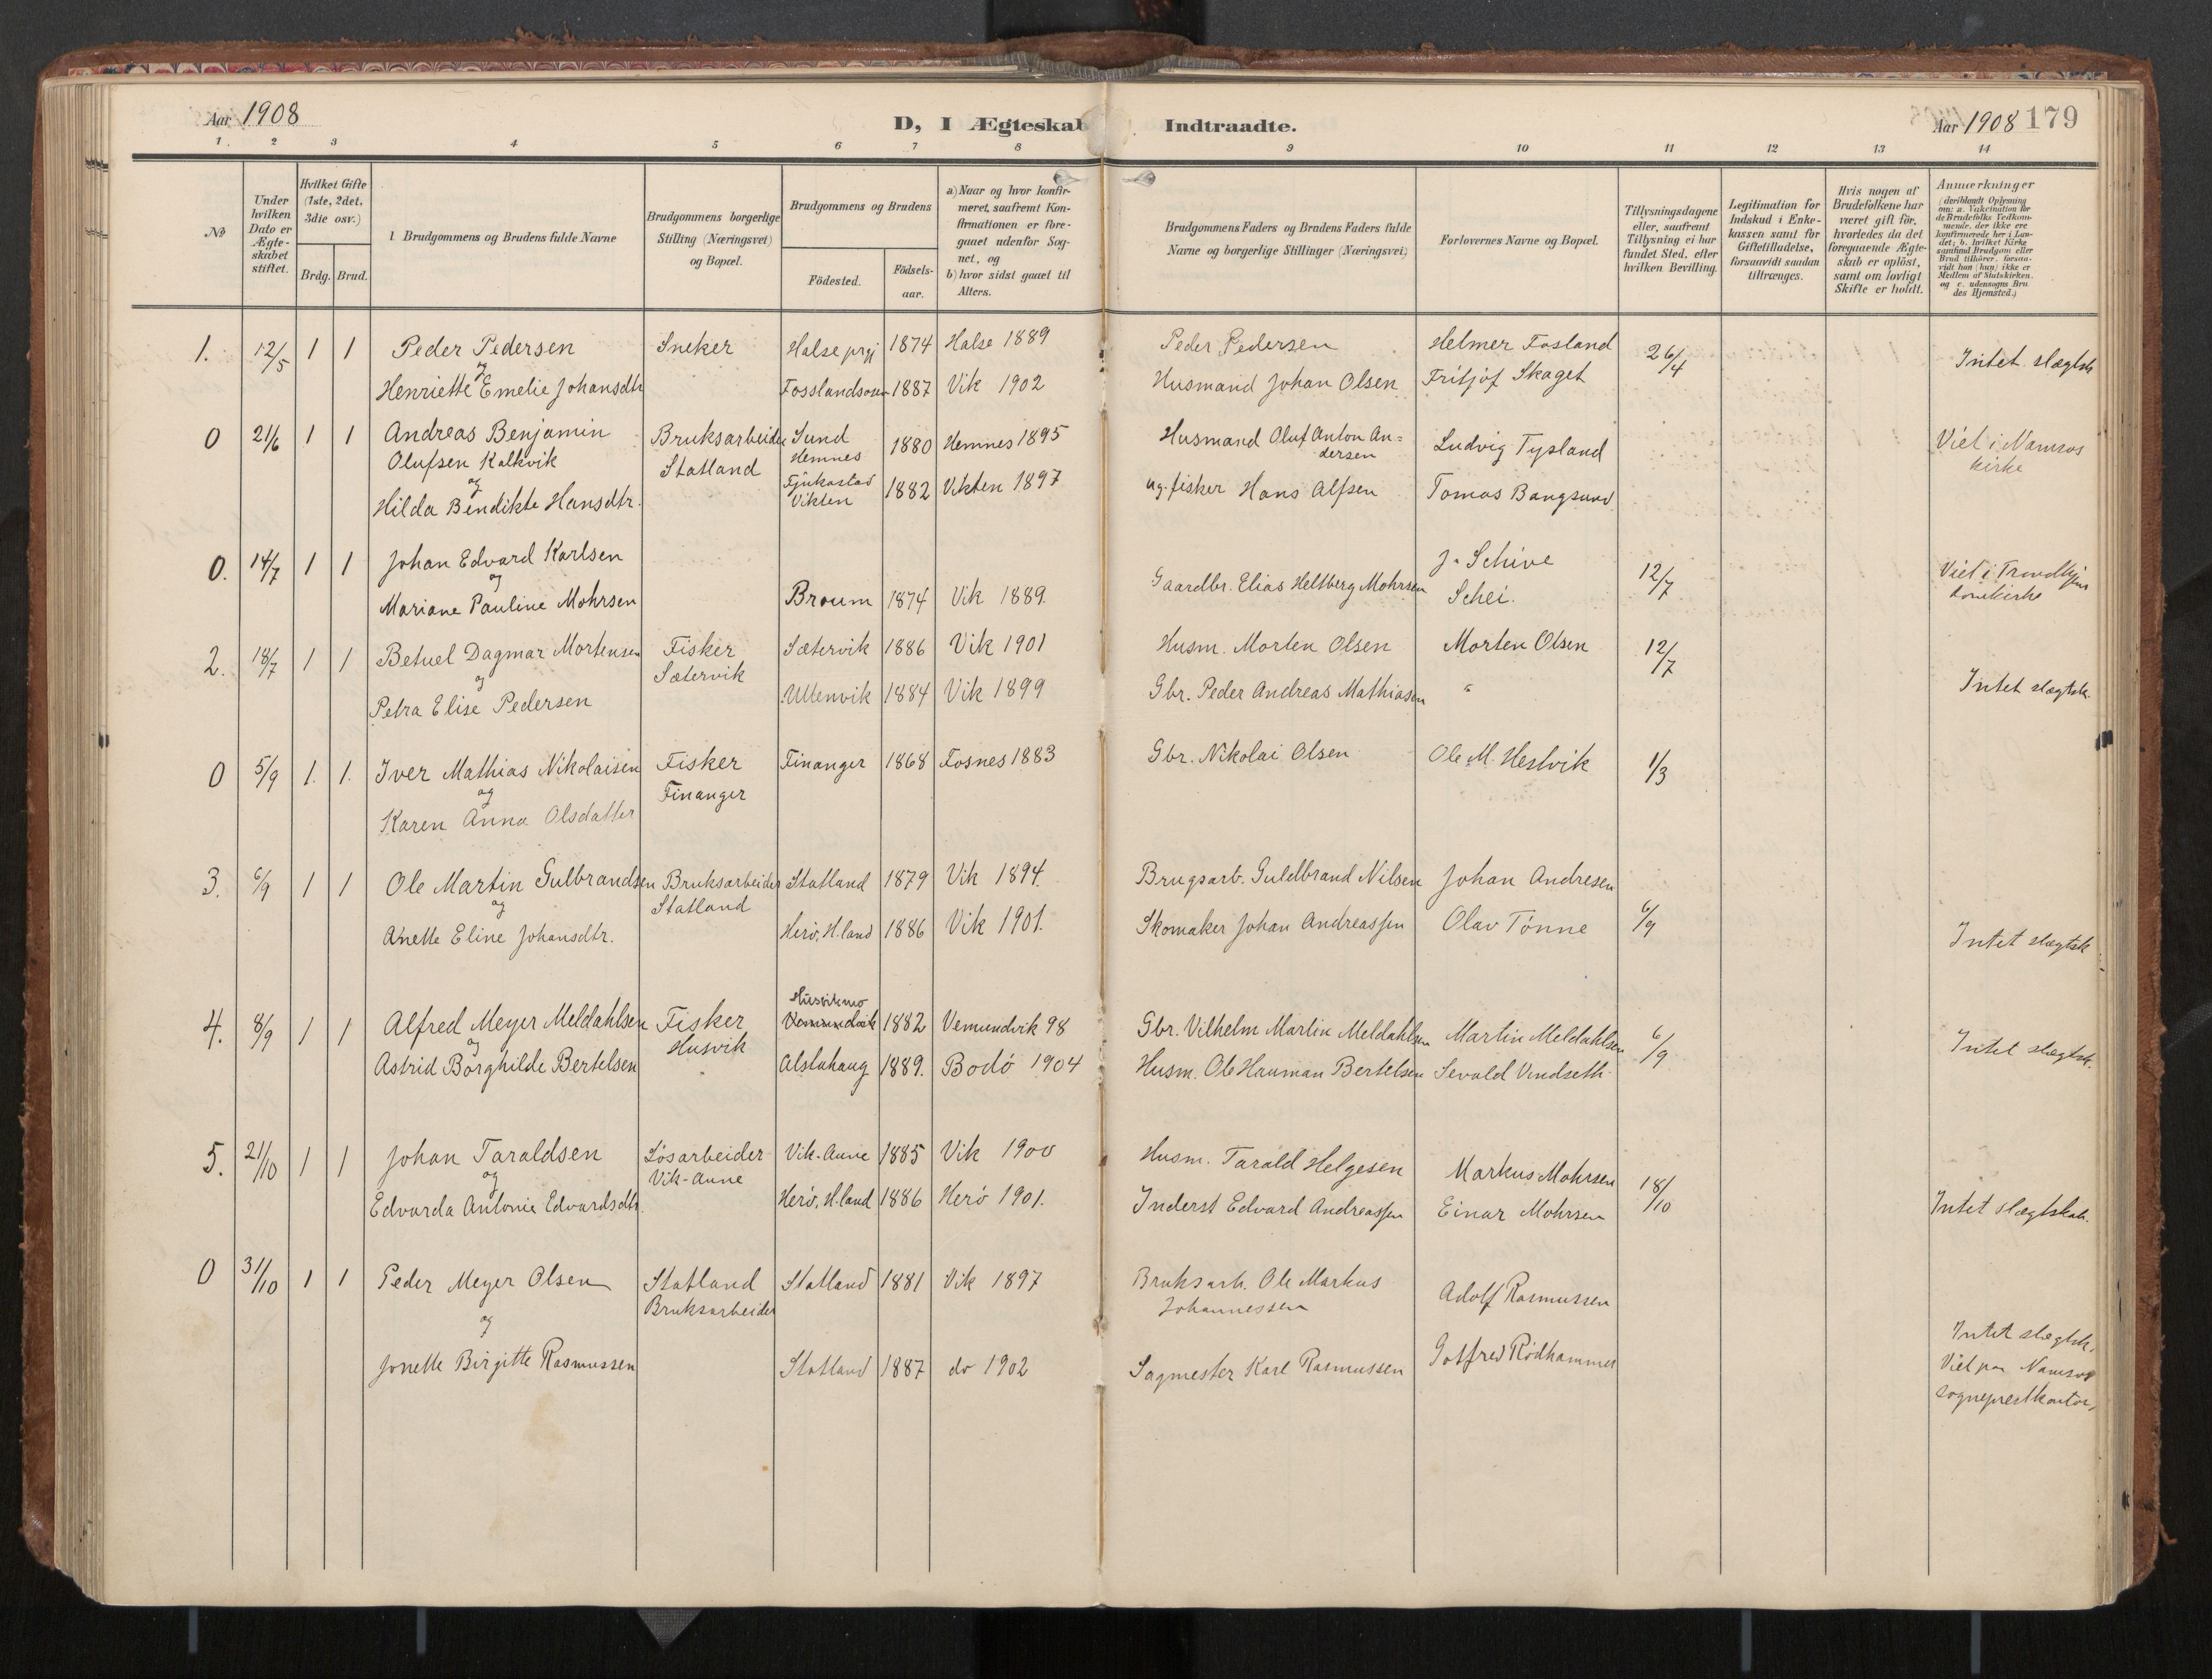 Aar 1908
D, I Ægteskab Indtraadte.
Aar 1908 179
1 2 3 4 5 6 7 8 9 10 11 12 13 14
№
Under hvilken Dato er Ægte-skabet stiftet.
Hvilket Gifte (1ste, 2det, 3die osv.)
Brdg. Brud.
Brudgommens og Brudens fulde Navne
Brudgommens borgerlige Stilling (Næringsvei) og Bopæl.
Brudgommens og Brudens
Födested.
Födsels-aar.
a) Naar og hvor konfir-meret, saafremt Kon-firmationen er fore-gaaet udenfor Sog-net, og
b) hvor sidst gaaet til Alters.
Brudgommens Faders og Brudens Faders fulde Navne og borgerlige Stillinger (Næringsvei)
Forlovernes Navne og Bopæl.
Tillysningsdagene eller, saafremt Tillysning ei har fundet Sted, efter hvilken Bevilling.
Legitimation for Indskud i Enke-kassen samt for Giftetilladelse, forsaavidt saadan tiltrænges.
Hvis nogen af Brudefolkene har været gift før, hvorledes da det foregaaende Ægte-skab er oplöst, samt om lovligt Skifte er holdt.
Anmærkninger
(deriblandt Oplysning om: a. Vakcination for de Brudefolks Vedkom-mende, der ikke ere konfirmerede her i Lan-det; b. hvilket Kirke-samfund Brudgom eller Brud tilhører, forsaa-vidt han (hun) ikke er Medlem af Statskirken, og c. udensogns Bru-des Hjemsted.)
1. 12/5 1 1 Peder Pedersen Sneker Halse prgj 1874 Halse 1889 Peder Pedersen Helmer Fosland 26/4 Intet slægtsk
og
Henriette Emelie Johansdtr Fosslandsosen 1887 Vik 1902 Husmand Johan Olsen Fritjof Skaget
0 21/6 1 1 Andreas Benjamin Bruksarbeider Sund 1880 Hemnes 1895 Husmand Oluf Anton An= Ludvig Tysland Viet i Namsos
Olufsen Kalkvik Statland Hemnes dersen kirke
og
Hilda Bendikte Hansdtr. Vikten 1882 Vikten 1897 ug. fisker Hans Alfsen Tomas Bangsund
0. 14/7 1 1 Johan Edvard Karlsen J. Schive 12/7 Viet i Trondhjem
og domkirke
Mariane Pauline Mohrsen Broum 1874 Vik 1889. Gaardbr. Elias Heltberg Mohrsen Schei.
2. 18/7 1 1 Betuel Dagmar Mortensen Fisker Sætervik 1886 Vik 1901 Husm. Morten Olsen Morten Olsen 12/7
og Sætervik
Petra Elise Pedersen Utlenvik 1884 Vik 1899 Gbr. Peder Andreas Mathiasen " Intet slægtsk.
0 5/9 1. 1. Iver Mathias Nikolaisen Fisker Finanger 1868 Fosnes 1883 Gbr. Nikolai Olsen Ole M. Hestvik 1/3
og Finanger
Karen Anna Olsdatter
3. 6/9 1 1 Ole Martin Gulbrandsen Bruksarbeider Statland 1879 Vik 1894. Brugsarb. Guldbrand Nilsen Johan Andresen
og Statland
Anette Eline Johansdtr. Herö, H.land 1886 Vik 1901. Skomaker Johan Andreassen Olav Tønne 6/9 Intet slægtsk
Husvikmo
4. 8/9 1 1 Alfred Meyer Meldahlsen Fisker Vemundvik 1882 Vemundvik 98 Gbr. Vilhelm Martin Meldahlsen Martin Meldahlsen 6/9 Intet slægtsk.
og Husvik
Astrid Borghilde Bertelsen Alstahaug 1889. Bodö 1904 Husm. Ole Hauman Bertelsen Sevald Vindseth
5. 21/10 1 1 Johan Taraldsen Løsarbeider Vik-Aune 1885 Vik 1900 Husm. Tarald Helgesen Markus Mohrsen 18/10
og Vik-Aune
Edvarda Antonie Edvardsdtr. Herö, H.land 1886 Herö 1901. Inderst Edvard Andreassen Einar Mohrsen Intet slægtskab.
0 31/10 1 1 Peder Meyer Olsen Statland Statland 1881 Vik 1897 Bruksarb. Ole Markus Adolf Rasmussen
Bruksarbeider Johannessen
og Intet slægtsk.
Jonette Birgitte Rasmussen Statland 1887 do 1902 Sagmester Karl Rasmussen Gotfred Rödhammer Viet paa Namsos
sogneprestkontor,